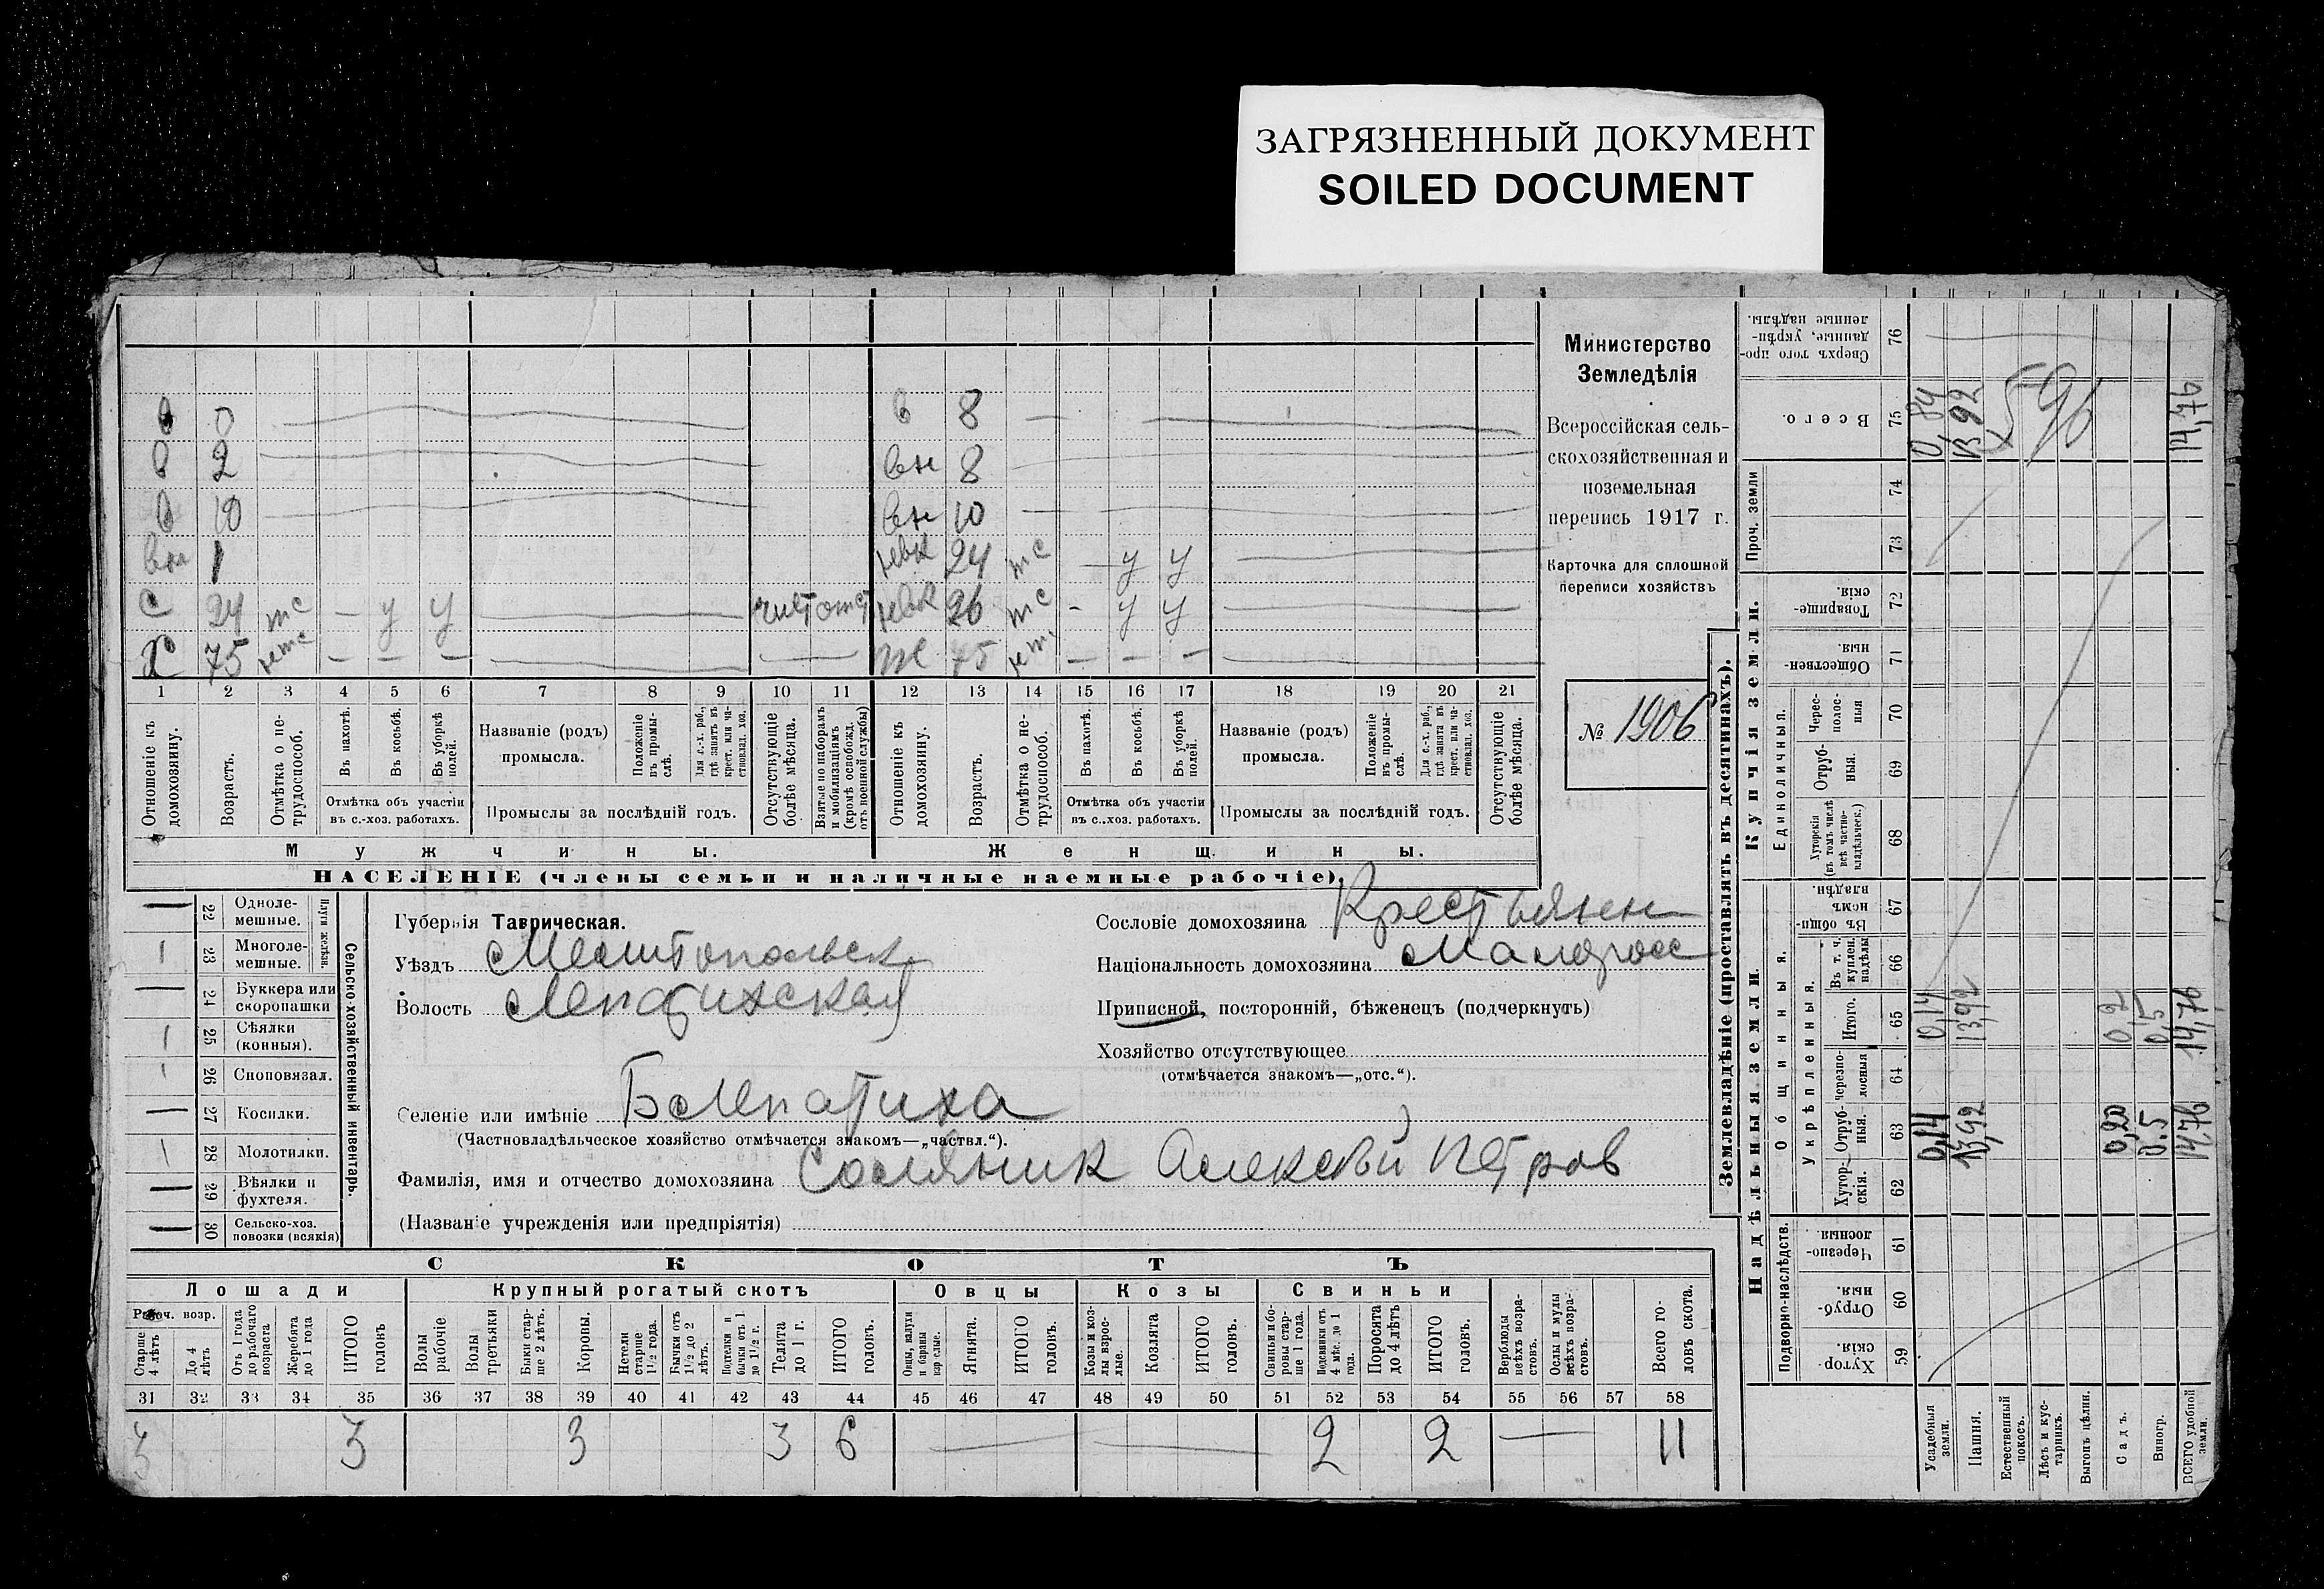 ЗАГРЯЗНЕННЫЙ ДОКУМЕНТ
SOILED DOCUMENT
в 0 в 8
в 2 вн 8
в 10 вн 10
вн 1 невк 24 тс — у у
с 24 тс — у у невк 26 тс - у у
Х 75 — — — ж 75 — — —
1 2 3 4 5 6 7 8 9 10 11 12 13 14 15 16 17 18 19 20 21
Отношеніе къ домохозяину.
Возрастъ.
Отмѣтка о нетрудоспособ.
Въ пахотѣ.
Въ косьбѣ.
Въ уборкѣ полей.
Отмѣтка объ участіи въ с.-хоз. работахъ.
Названіе (родъ) промысла.
Положеніе въ промыслѣ.
Для с.-х. раб., гдѣ занятъ въ крест. или частновлад. хоз.
Промыслы за послѣдній годъ.
Отсутствующіе болѣе мѣсяца.
Взятые по наборамъ и мобилизаціямъ (кромѣ освобожд. отъ военной службы)
Отношеніе къ домохозяину.
Возрастъ.
Отмѣтка о нетрудоспособ.
Въ пахотѣ.
Въ косьбѣ.
Въ уборкѣ полей.
Отмѣтка объ участіи въ с.-хоз. работахъ.
Названіе (родъ) промысла.
Положеніе въ промыслѣ.
Для с.-х. раб., гдѣ занята въ крест. или частновлад. хоз.
Промыслы за послѣдній годъ.
Отсутствующіе болѣе мѣсяца.
Мужчины. Женщины.
НАСЕЛЕНІЕ (члены семьи и наличные наемные рабочіе).
Министерство
Земледѣлія
Всероссійская сель-
скохозяйственная и
поземельная
перепись 1917 г.
Карточка для сплошной
переписи хозяйствъ
№ 1906
22 Одноле-мешные.
23 Многоле-мешные.
Плуги желѣзн.
24 Буккера или скоропашки
25 Сѣялки (конныя).
26 Сноповязал.
27 Косилки.
28 Молотилки.
29 Вѣялки и фухтеля.
30 Сельско-хоз. повозки (всякія)
Сельско-хозяйственный инвентарь.
Губернія Таврическая.
Уѣздъ Мелитопольск
Волость Лепатихская
Селеніе или имѣніе Б Лепатиха
(Частновладѣльческое хозяйство отмѣчается знакомъ—„частвл.“).
Фамилія, имя и отчество домохозяина Соляник Алексѣй Петров
(Названіе учрежденія или предпріятія)
Сословіе домохозяина Крестьянен
Національность домохозяина Малорос
Приписной, посторонній, бѣженец (подчеркнуть)
Хозяйство отсутствующее
(отмѣчается знакомъ—„отс.“).
СКОТЪ
Лошади Крупный рогатый скотъ Овцы Козы Свиньи
Рабоч. возр.
Старше 4 лѣтъ
До 4 лѣтъ
Отъ 1 года до рабочаго возраста
Жеребята до 1 года
ИТОГО головъ
Волы рабочіе
Волы третьяки
Быки старше 2 лѣтъ.
Коровы.
Нетели старше 1½ года.
Бычки отъ 1½ до 2 лѣтъ.
Подтелки и бычки отъ 1 до 1½ г.
Телята до 1 г.
ИТОГО головъ.
Овцы, валухи и бараны взрослые.
Ягнята.
ИТОГО головъ.
Козы и козлы взрослые.
Козлята
ИТОГО головъ.
Свиньи и боровы старше 1 года.
Подсвинки отъ 4 мѣс. до 1 года.
Поросята до 4 лѣтъ
ИТОГО головъ.
Верблюды всѣхъ возрастовъ.
Ослы и мулы всѣхъ возрастовъ.
Всего головъ скота.
31 32 33 34 35 36 37 38 39 40 41 42 43 44 45 46 47 48 49 50 51 52 53 54 55 56 57 58
3 3 3 3 6 2 2 11
Землевладѣніе (проставлять въ десятинахъ).
Купчія земли.
Надѣльныя земли.
Сверхъ того проданные, укрѣпленные надѣлы. 76
Всего. 75 0,84 13,92 14,76
596
Проч. земли 74 73
Товарищескія. 72
Общественныя. 71
Единоличныя.
Чересполосныя 70
Отрубныя. 69
Хуторскія (въ томъ числѣ всѣ частновладѣльческ.) 68
Общинныя.
Въ общинномъ владѣн. 67
Укрѣпленныя.
Въ т. ч. куплен. надѣлы 66
Итого. 65 0,14 13,92 0,2 0,5 14,76
Черезполосныя 64
Отрубныя. 63 0,14 13,92 0,20 0,5 14,76
Хуторскія. 62
Подворно-наслѣдств.
Черезполосныя. 61
Отрубныя. 60
Хуторскія 59
Усадебныя земли.
Пашня.
Естественный покосъ.
Лѣсъ и кустарникъ.
Выгонъ цѣлин.
Садъ.
Виногр.
ВСЕГО удобной земли.